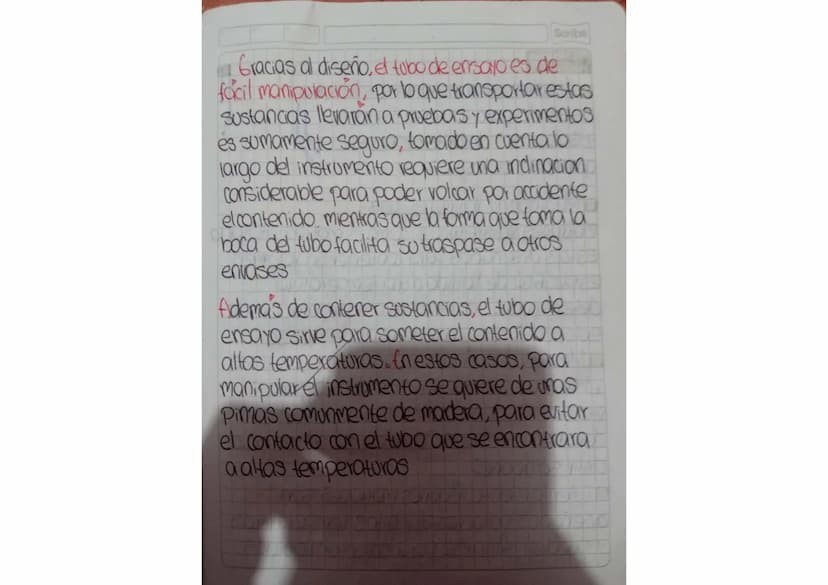 Scribe
Gracias al diseño, el tubo de ensayo es de
fácil manipulación, por lo que transportar estas
sustancias llevarán a pruebas y experimentos
és sumamente seguro, tomado en cuenta lo
largo del instrumento requiere una indinacion
considerable para poder volcar por accidente
el contenido. mientras que la forma que toma la
boca del tubo facilita su traspase a otros
envases
Además de contener sustancias, el tubo de
ensayo sirve para someter el contenido a
altas temperaturas. En estos casos, para
manipular el instrumento se quiere de unas
pimas comunmente de madera, para evitar
el contacto con el tubo que se encontrara
a altas temperaturas